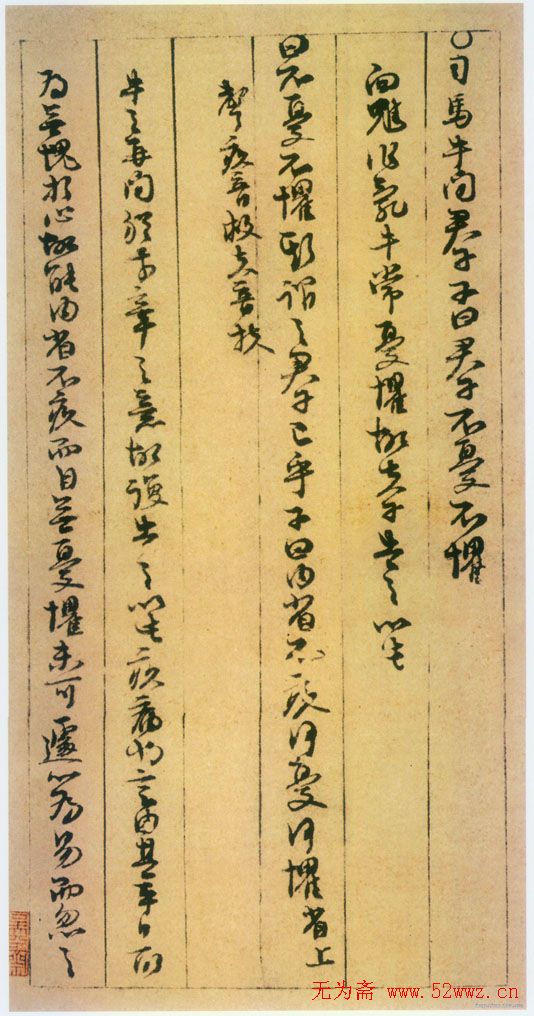 〇司馬牛問君子子曰君子不憂不懼
向魋作亂牛常憂懼故夫子告之以此
曰不憂不懼斯謂之君子已乎子曰内省不疚何憂何懼省上
聲疚音救夫音扶
牛之再問猶前章之意故復告之以此疚病也言由其平日所
為無愧於心故能内省不疚而自無憂懼未可遽以為易而忽之
无为斋 www.52wwz.cn